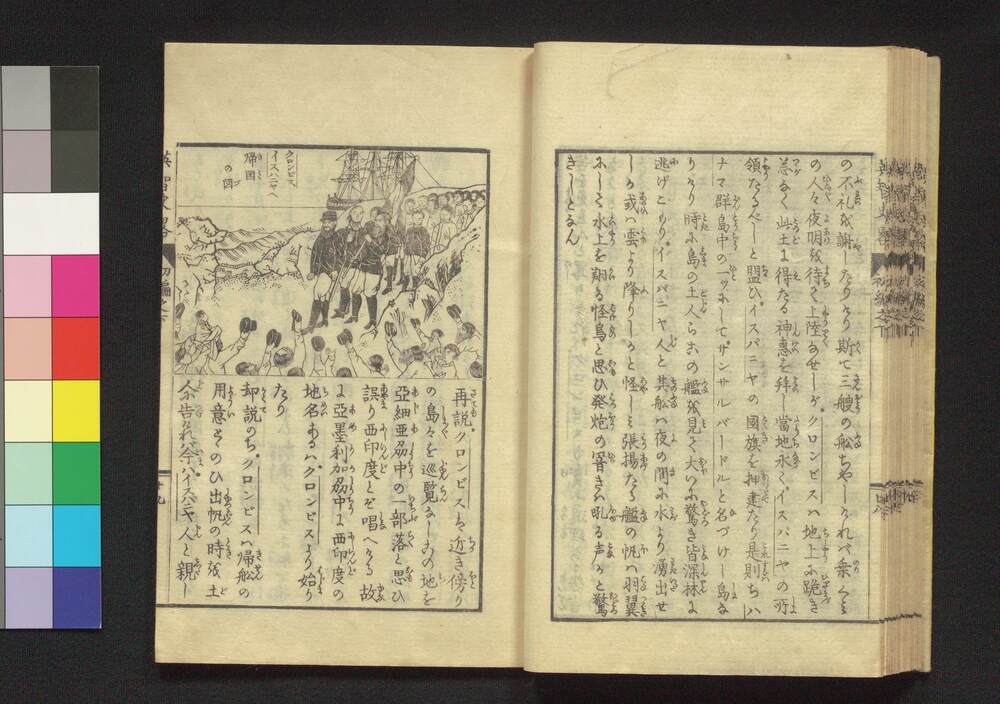 の不礼を謝したりけり斯て三艘の舩ちやしければ乗くみ
の人々夜明を待て上陸なせしがクロンビスハ地上に跪き
恙なく此土に得たる神恵を拝し當地永くイスパニヤの所
領たるべしと盟ひイスパニヤの國旗を押建たり是則ちハ
ナマ群島中の一ツにしてサンサルバードルと名づけし島な
りけり時に島の土人らこの艦を見て大いに驚き皆深林に
逃げこもりイスパニヤ人と其舩ハ夜の間に水より湧出せ
しか或ハ雲より降りしかと怪しミ張揚たる艦の帆ハ羽翼
にして水上を翔る怪鳥と思ひ発炮の響きハ吼る声かと驚
きしとなん
クロンビス
イスハニヤヘ
帰国
の図
再説クロンビスハ近き傍り
の島々を巡覧なしこの地を
亞細亜刕中の一部落と思ひ
誤り西印度とぞ唱へける故
に亞墨利加刕中に西印度の
地名あるハクロンビスより始り
たり
却説のちクロンビスハ帰舩の
用意とゝのひ出帆の時を土
人に告ければ条ハイスハニヤ人と親し